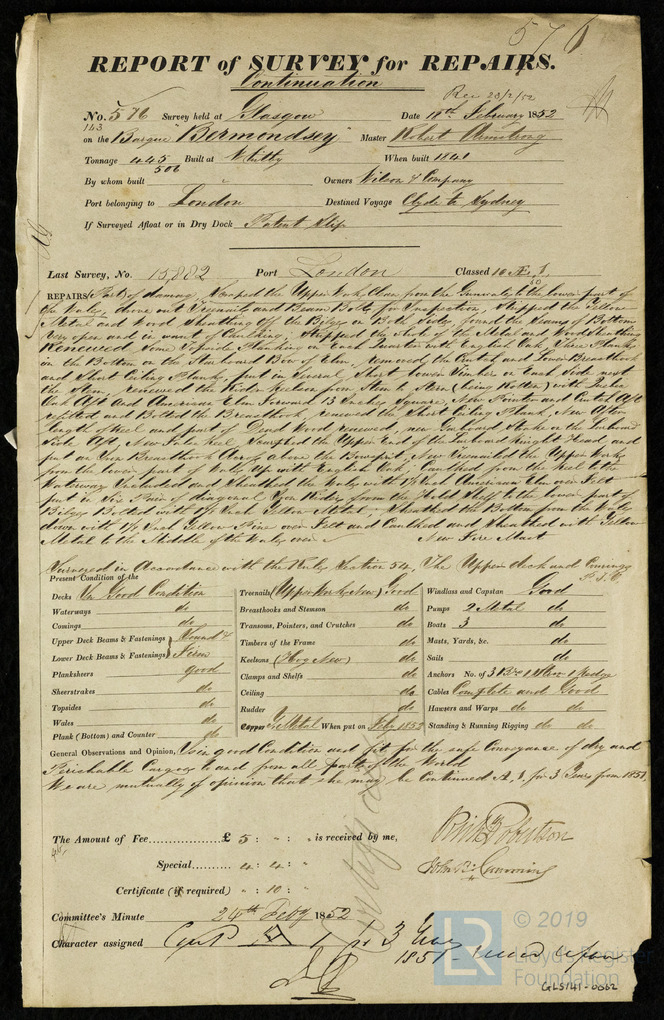 576
REPORT of SURVEY for REPAIRS.
Continuation
Rec 23/2/52
No. 576 Survey held at Glasgow Date 18th February 1852
143
on the Barque "Bermondsey" Master Robert Armstrong
Tonnage 445 Built at Whitby When built 1841
506
By whom built " Owners Wilson & Company
Port belonging to London Destined Voyage Clyde to Sydney
If Surveyed Afloat or in Dry Dock Patent Slip
Last Survey, No. 15,882 Port London Classed 10 A 1,
REPAIRS (Part of damage, Scraped the Upper Works Clean from the Gunwale to the lower part of
the Wales, drove out Treenails and Beam Bolts for Inspection, Stripped the Yellow
Metal and Wood Sheathing off the Bilges on Both Sides, found the Seams of Bottom
Very open and in want of Caulking, Stripped the whole of the Metal and Wood Sheathing
Renewed some Topside Planking on each Quarter with English Oak, Three Planks
in the Bottom on the Starboard Bow of Elm, removed the Center and Lower Breasthook
and Short Ceiling Planks, put in Several Short lower Timbers on Each Side next
the stem, renewed the Rider Keelson from Stem to Stern (being Rotten) with
Oak Aft and American Elm Forward 13 Inches Square, New Pointer and Crutch Aft
refitted and Bolted the Breasthook, renewed the Short Ceiling Plank, New After
length of Keel and part of Dead Wood renewed, new Garboard Strake on the Larboard
Side Aft, New False Keel, Scarphed the Upper End of the Larboard Knight Head, and
put an Iron Breasthook Across above the Bowsprit, New Treenailed the Upper Works
from the lower part of Wales up with English Oak, Caulked from the Keel to the
Waterway Included and Sheathed the Wales with 1½ Inch American Elm over Felt
put in Six Pair of diagonal Iron Rider from the Hold Shelf to the lower part of
Bilges Bolted with 1⅛ Inch Yellow Metal, Sheathed the Bottom from the Wales
down with 1½ Inch Yellow Pine over Felt and Caulked and Sheathed with Yellow
Metal to the Middle of the Wales over New Fore Mast
Surveyed in Accordance with the Rules Section 54, The Upper deck and Comings
P.T.O
Present Condition of the
Decks In Good Condition
Waterways do
Comings do
Upper Deck Beams & Fastenings } Sound &
Lower Deck Beams & Fastenings } Firm
Planksheers good
Sheerstrakes do
Topsides do
Wales do
Plank (Bottom) and Counter do
Treenails (Upper Works New) Good
Breasthooks and Stemson do
Transoms, Pointers, and Crutches do
Timbers of the Frame do
Keelsons (Hog New) do
Clamps and Shelfs do
Ceiling do
Rudder do
Copper Y. Metal When put on Feby 1852
Windlass and Capstan Good
Pumps 2 Metal do
Boats 3 do
Masts, Yards, &c. do
Sails do
Anchors No. of 3 Brs 1 Strm 1 Kedge
Cables Complete and Good
Hawsers and Warps do do
Standing & Running Rigging do do
General Observations and Opinion, Is in good Condition and fit for the safe Conveyance of dry and
Perishable Cargoes to and from all parts of the World
We are mutually of opinion that she may be Continued A, 1, for 3 Years from 1851,
The Amount of Fee £ 5 : " : " is received by me,
Robertson
Special 4 : 4 : "
John Cumming
Certificate (if required) " : 10 : "
Committee's Minute 24th Feby 1852
Character assigned Cont A 1 for 3 Years
1851
© 2019
LR
Lloyd's Register
Foundation
GLS141-0062